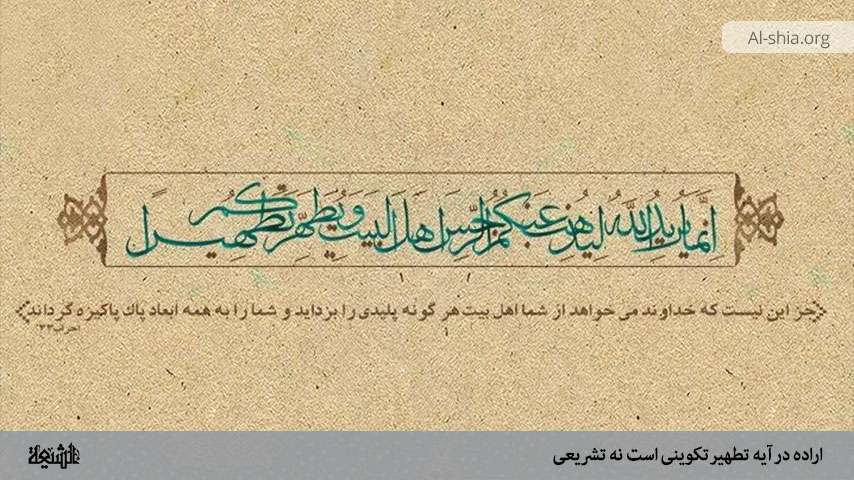 Al-shia.org
إنَّما یُریدُ اللَّهُ لِیُذهِبَ عَنکُمُ الرِّجسَ اَهلَ البَیتِ وَ یُطَهِّرَکُم تَطهیراً
جز این نیست که خداوند می خواهد از شما اهل بیت هر گونه پلیدی را بزداید و شما را به همه ابعاد پاك پاکیزه گرداند
احزاب۳۳
اراده در آیه تطهیر تکوینی است نه تشریعی
الشیعة